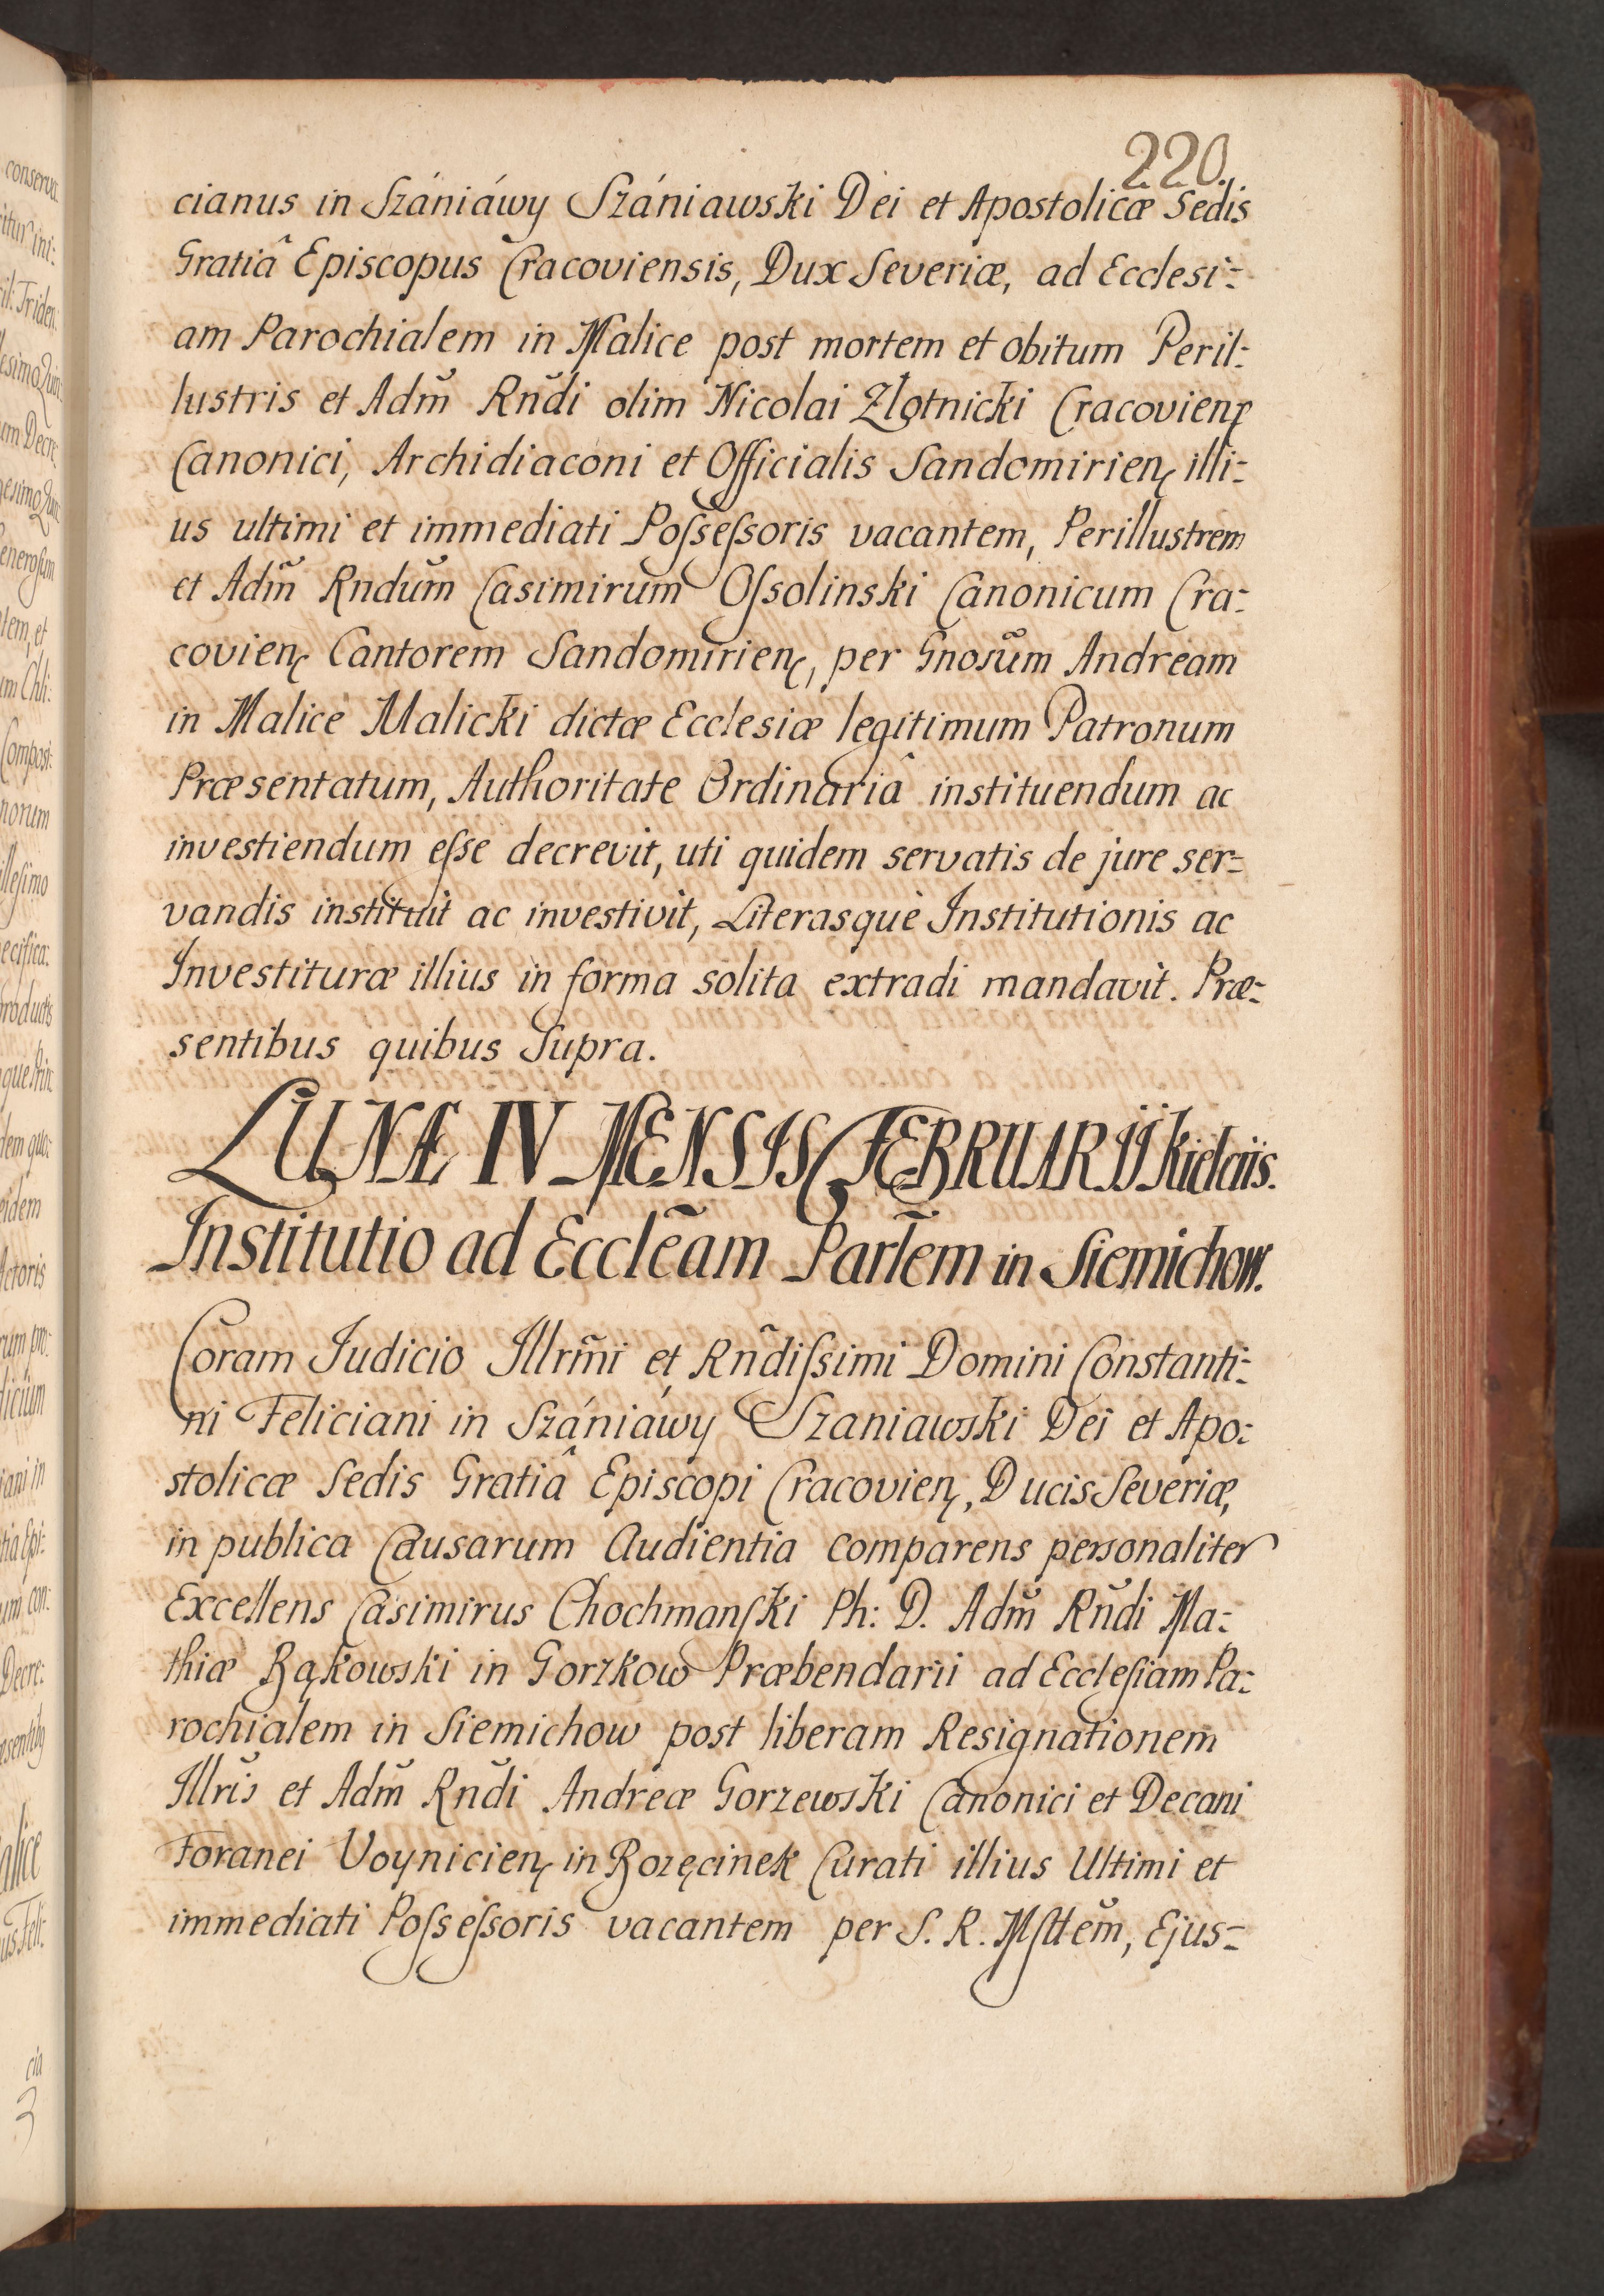 220.
cianus in Szániáwy Szániawski Dei et Apostolicæ Sedis
Gratiâ Episcopus Cracoviensis, Dux Severiæ, ad Ecclesi-
am Parochialem in Malice post mortem et obitum Peril-
lustris et Adm̃ Rñdi olim Nicolai Zlotnicki Cracovien
Canonici, Archidiaconi et Officialis Sandomirien illi-
us ultimi et immediati Poſseſsoris vacantem, Perillustrem
et Adm̃ Rndum̃ Casimirum Oſsolinski Canonicum Cra-
covien Cantorem Sandomirien, per Gnosum̃ Andream
in Malice Malicki dictæ Ecclesiæ legitimum Patronum
Præsentatum, Authoritate Ordinariâ instituendum ac
investiendum eſse decrevit, uti quidem servatis de jure ser-
vandis instituit ac investivit, Literasque Institutionis ac
Investituræ illius in forma solita extradi mandavit. Præ-
sentibus quibus Supra.
LUNÆ IV MENSIS FEBRUARII Kielciis.
Institutio ad Ecclẽam Parl̃em in Siemichow.
Coram Judicio Illrm̃i et Rñdiſsimi Domini Constanti-
ni Feliciani in Szániáwy Szaniawski Dei et Apo-
stolicæ Sedis Gratiâ Episcopi Cracovien, Ducis Severiæ,
in publica Causarum Audientia comparens personaliter
Excellens Casimirus Chochmanſki Ph: D. Adm̃ Rñdi Ma-
thiæ Bąkowski in Gorzkow Præbendarii ad Eccleſiam Pa-
rochialem in Siemichow post liberam Resignationem
Illrĩs et Adm̃ Rñdi Andreæ Gorzewski Canonici et Decani
Foranei Voynicien in Bozęcinek Curati illius Ultimi et
immediati Poſseſsoris vacantem per S. R. Mſttem̃, Ejus-